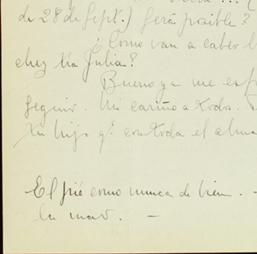 de 28 de Sept.) Será posible?
¿Como van a caber
chez tía Julia?
Bueno ya me
seguir. Un cariño a toda.
tu hijo q. con toda el alma
El pié como nunca de bien. —
la mav. —